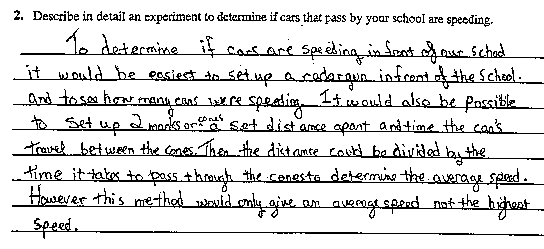 2. Describe in detail an experiment to determine if cars that pass by your school are speeding.
To determine if cars are speeding in front of our School
it would be easiest to set up a radargun infront of the School.
and to see how many cars were speeding It would also be Possible
to set up 2 marks or cones a set distance apart and time the car's
travel between the cones. Then the distance could be divided by the
time it takes to pass through the cones to determine the average speed.
However this method would only give an average speed not the highest
Speed.